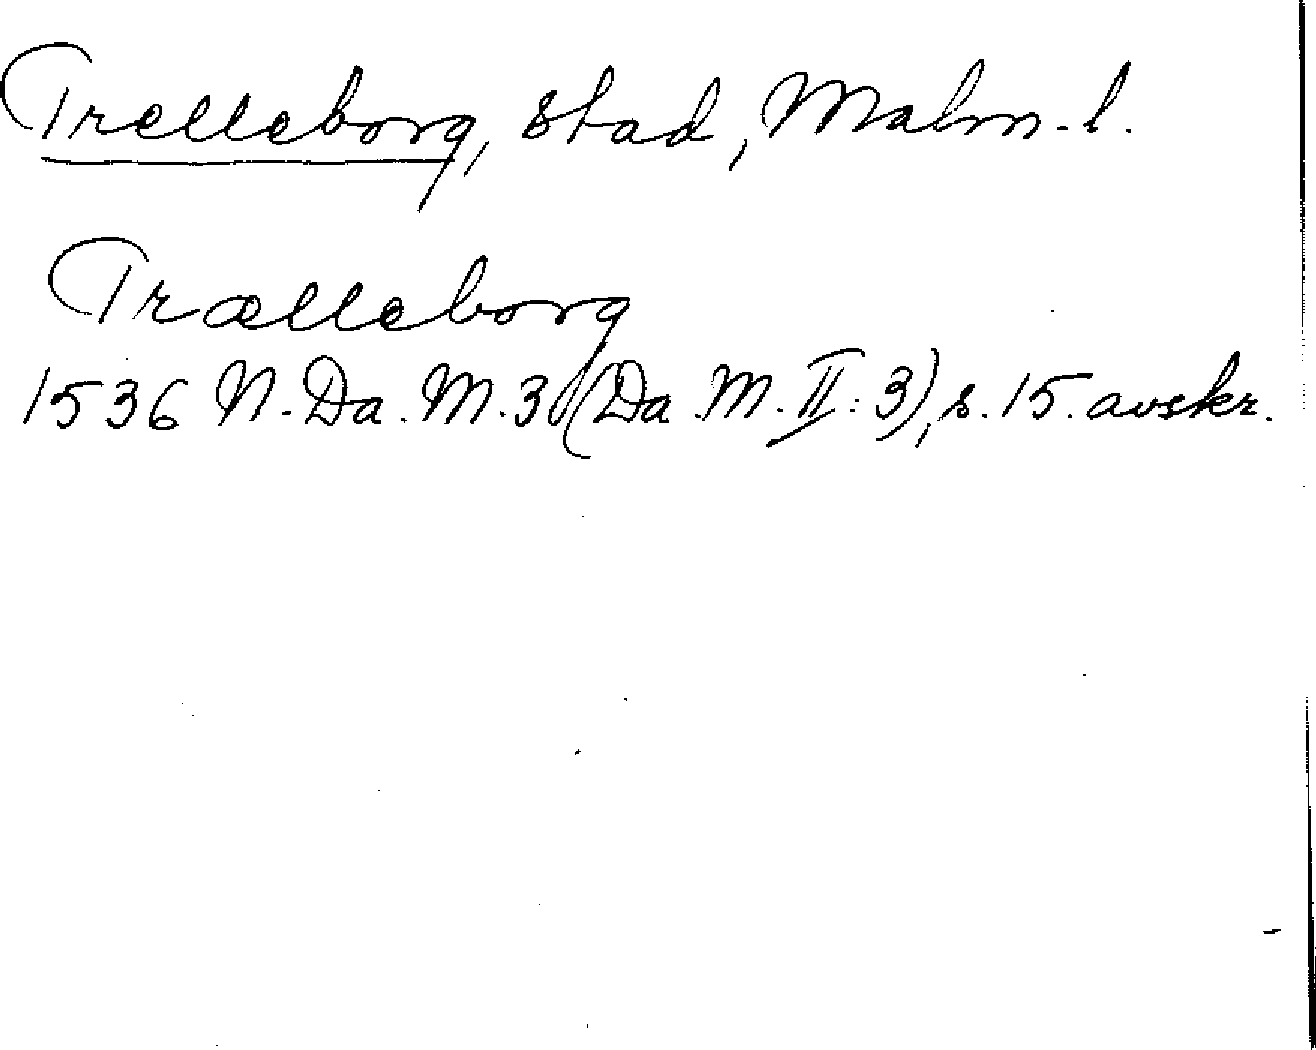 Trelleborg, stad, Malm. l.
Trælleborg
1536 N. Da. M. 3 (Da M. II: 3), s. 15. avskr.